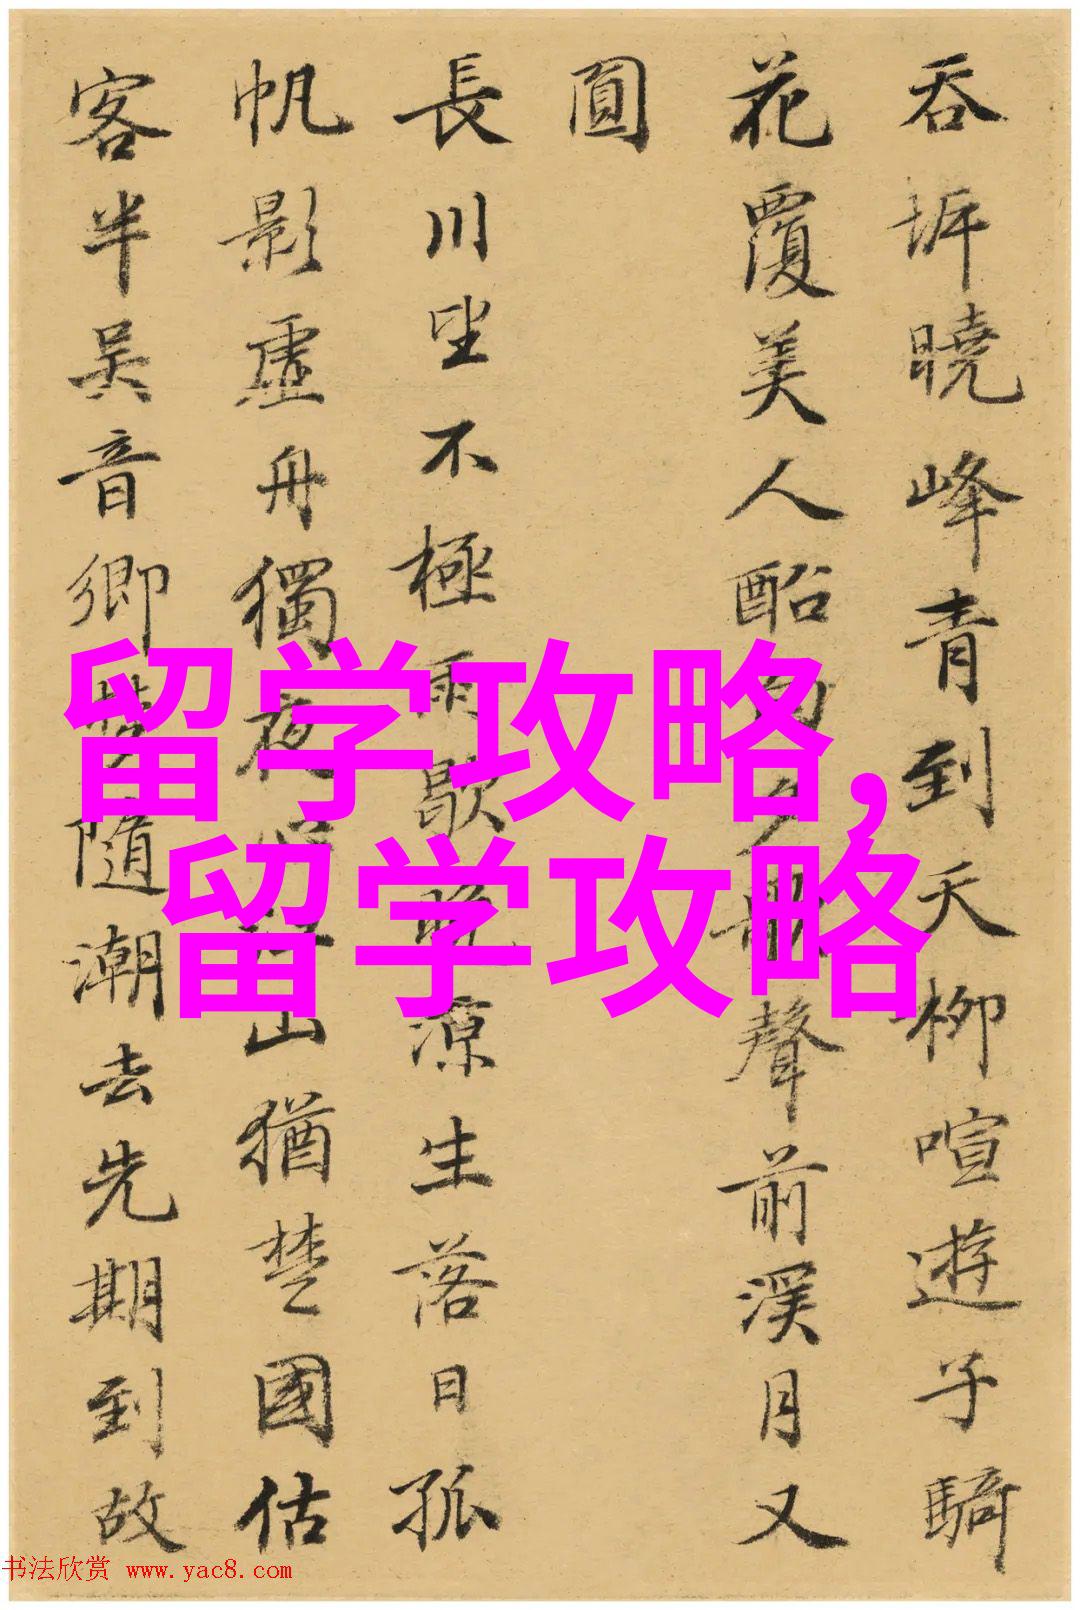 吞坼曉峰青到天柳喧遊子騎
花覆美人酣 聲前溪月又
圓
長川坐不極雨歇 凉生落日孤
帆影虛舟獨夜 山猶楚國估
客半吳音鄉 隨潮去先期到故
留学攻略,
留学攻略
书法欣赏 www.yac8.com